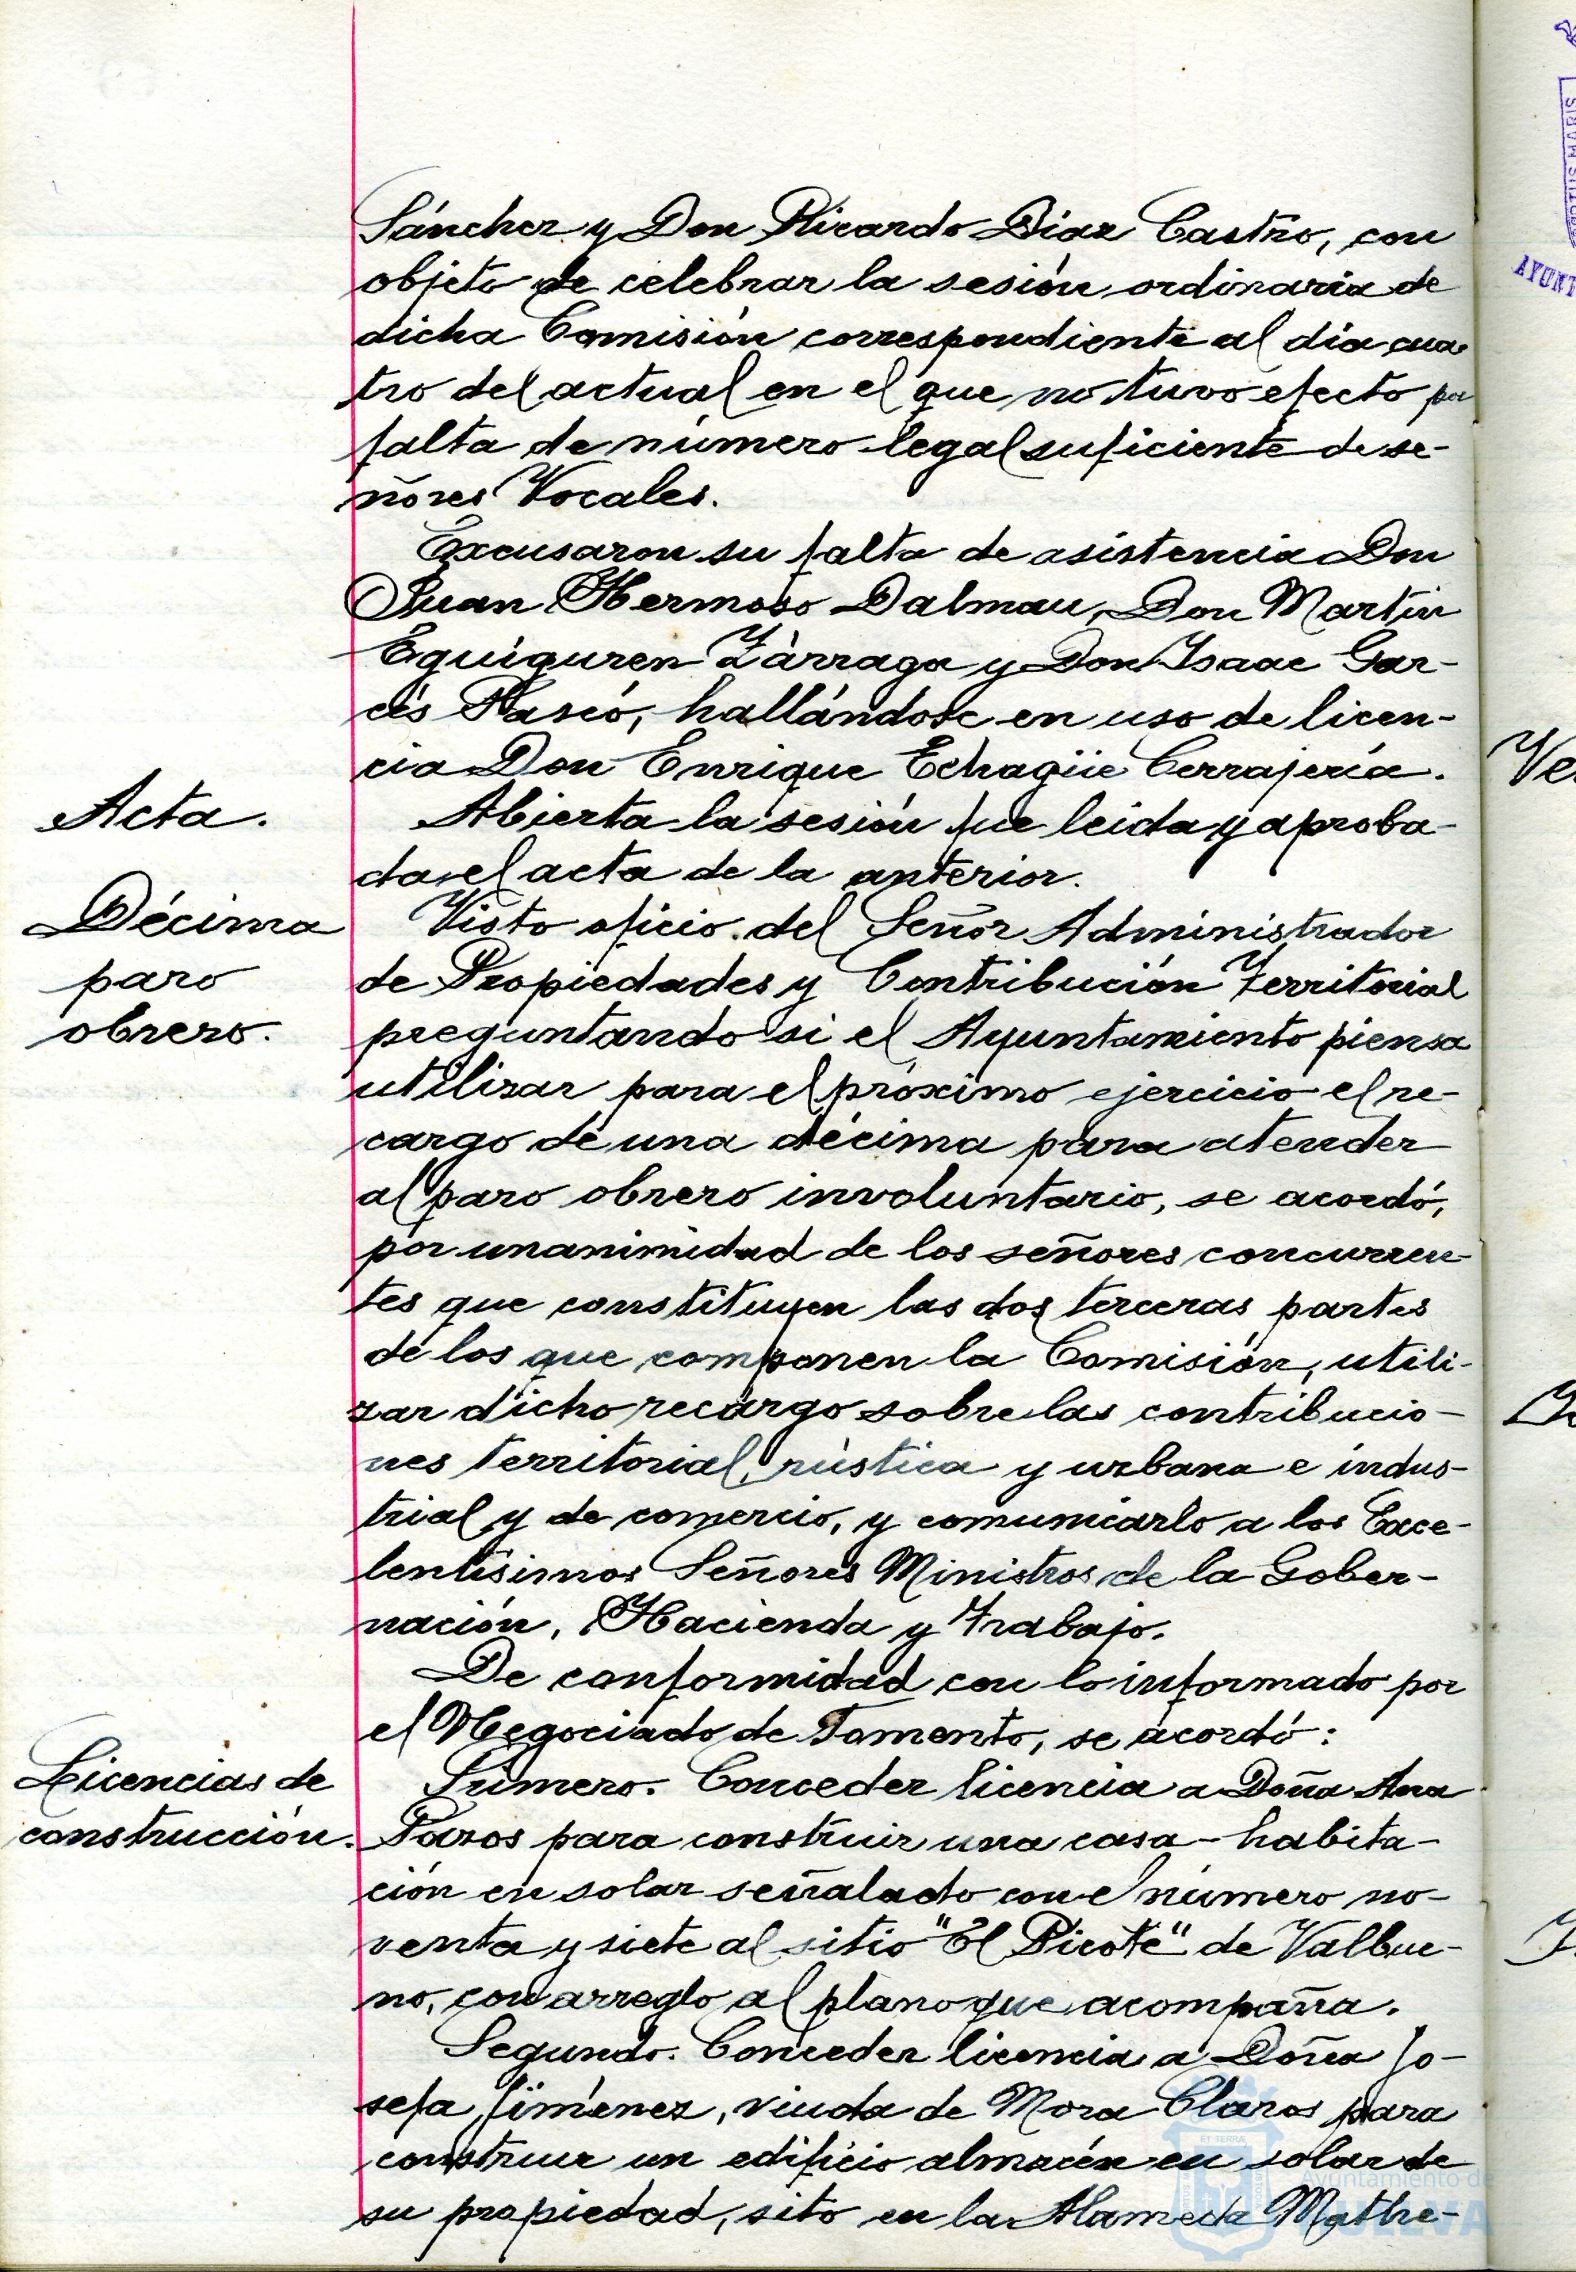 Sánchez y Don Ricardo Díaz Castro, con
objeto de celebrar la sesión ordinaria de
dicha Comisión correspondiente al día cua-
tro del actual en el que no tuvo efecto por
falta de número legal suficiente de se-
ñores Vocales.
Excusaron su falta de asistencia Don
Juan Hermoso Dalmau, Don Martín
Eguiguren Zárraga y Don Isaac Gar-
cés Rascó, hallándose en uso de licen-
cia Don Enrique Echagüe Cerrajería.
Acta.
Abierta la sesión fue leida y aproba-
da el acta de la anterior.
Décima
paro
obrero.
Visto oficio del Señor Administrador
de Propiedades y Contribución Territorial
preguntando si el Ayuntamiento piensa
utilizar para el próximo ejercicio el re-
cargo de una décima para atender
al paro obrero involuntario, se acordó,
por unanimidad de los señores concurren-
tes que constituyen las dos terceras partes
de los que componen la Comisión, utili-
zar dicho recargo sobre las contribucio-
nes territorial, rústica y urbana e indus-
trial y de comercio, y comunicarlo a los Exce-
lentísimos Señores Ministros de la Gober-
nación, Hacienda y Trabajo.
De conformidad con lo informado por
el Negociado de Fomento, se acordó:
Licencias de
construcción.
Primero. Conceder licencia a Doña Ana
Pazos para construir una casa-habita-
ción en solar señalado con el número no-
venta y siete al sitio "El Picote" de Valbue-
no, con arreglo al plano que acompaña.
Segundo. Conceder licencia a Doña Jo-
sefa Jiménez, viuda de Mora Claros para
construir un edificio almacén en solar de
su propiedad, sito en la Alameda Mathe-
Ayuntamiento de
HUELVA
ET TERRÆ
AYUNT